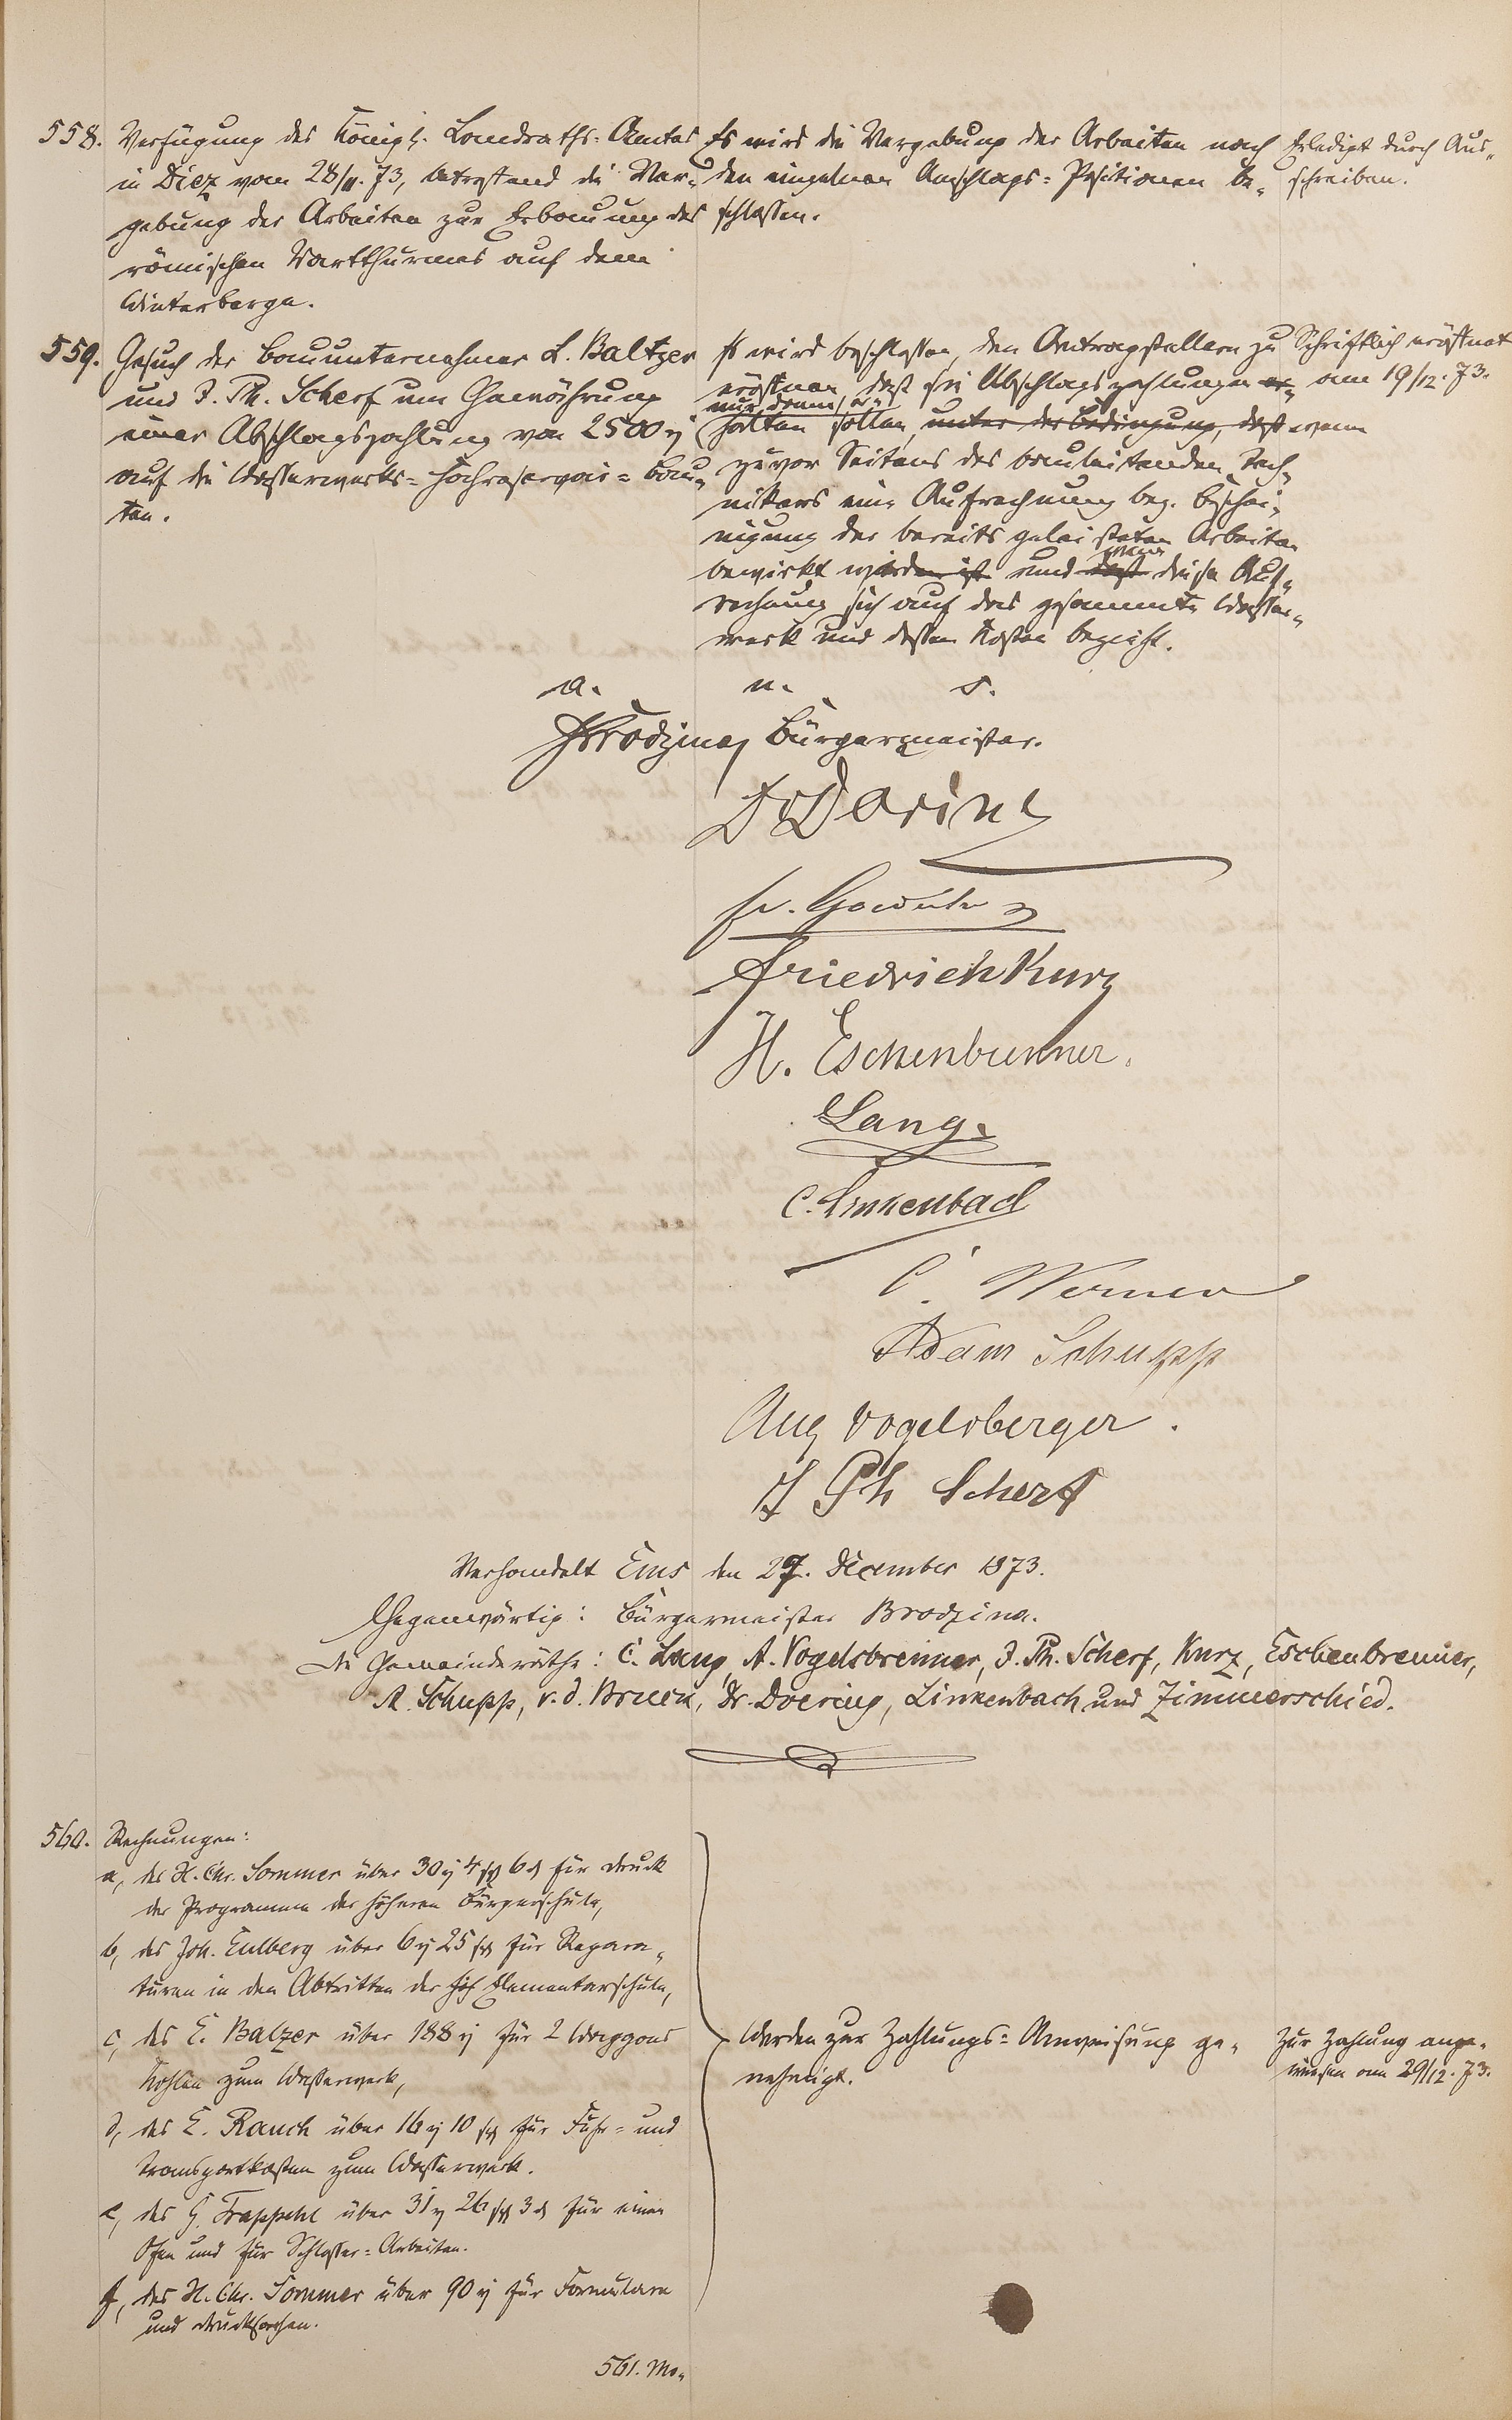 558. Verfügung des Königl. Landraths-Amtes
in Diez vom 28/11. 73, betreffend die Ver-
gebung der Arbeiten zur Erbauung des
römischen Wartthurmes auf dem
Winterberge.
Es wird die Vergebung der Arbeiten nach
den einzelnen Anschlags-Positionen be-
schlossen.
Erledigt durch Aus-
schreiben.
559. Gesuch der Bauunternehmer L. Baltzer
und J. Ph. Scherf um Gewährung
einer Abschlagszahlung von 2500
auf die Wasserwerks-Hochreservoir-Bau-
ten.
Es wird beschlossen, den Antragstellern zu
eröffnen, daß sie Abschlagszahlungen er-
nur dann,
halten sollen, unter der Bedingung, daß wenn
zuvor Seitens des bauleitenden Tech-
nikers eine Aufrechnung bez. Beschei-
nigung der bereits geleisteten Arbeiten
wenn
bewirkt worden ist und daß diese Auf-
rechnung sich auf das gesammte Wasser-
werk und dessen Kosten bezieht.
Schriftlich eröffnet
am 19/12. 73.
a. u. s.
Brodzina, Bürgermeister.
Dr Döring
Friedrich Kurz
H. Eschenbrenner.
Lang.
C. Linkenbach
C. Werner
Adam Schupp
Aug Vogelsberger.
J Ph Scherf
Verhandelt Ems den 27. December 1873.
Gegenwärtig: Bürgermeister Brodzina.
die Gemeinderäthe: C. Lang, A. Vogelsbrenner, J. Ph. Scherf, Kurz, Eschenbrenner,
A. Schupp, v. d. Brück, Dr. Doering, Linkenbach und Zimmerschied.
560. Rechnungen:
a, des H. Chr. Sommer über 30 4 6 für Druck
der Programme der höheren Bürgerschule,
b, des Joh. Eulberg über 6 25 für Repara-
turen in den Abtritten der höh Elementarschule,
c, des E. Balzer über 188 für 2 Waggons
Kohlen zum Wasserwerk,
d, des E. Rauch über 16 10 für Fuhr- und
Transportkosten zum Wasserwerk.
e, des G. Trappehl über 31 26 3 für einen
Ofen und für Schlosser-Arbeiten.
f, des H. Chr. Sommer über 90 für Formulare
und Drucksachen.
Werden zur Zahlungs-Anweisung ge-
nehmigt.
Zur Zahlung ange-
wiesen am 29/12. 73.
561. Mo-